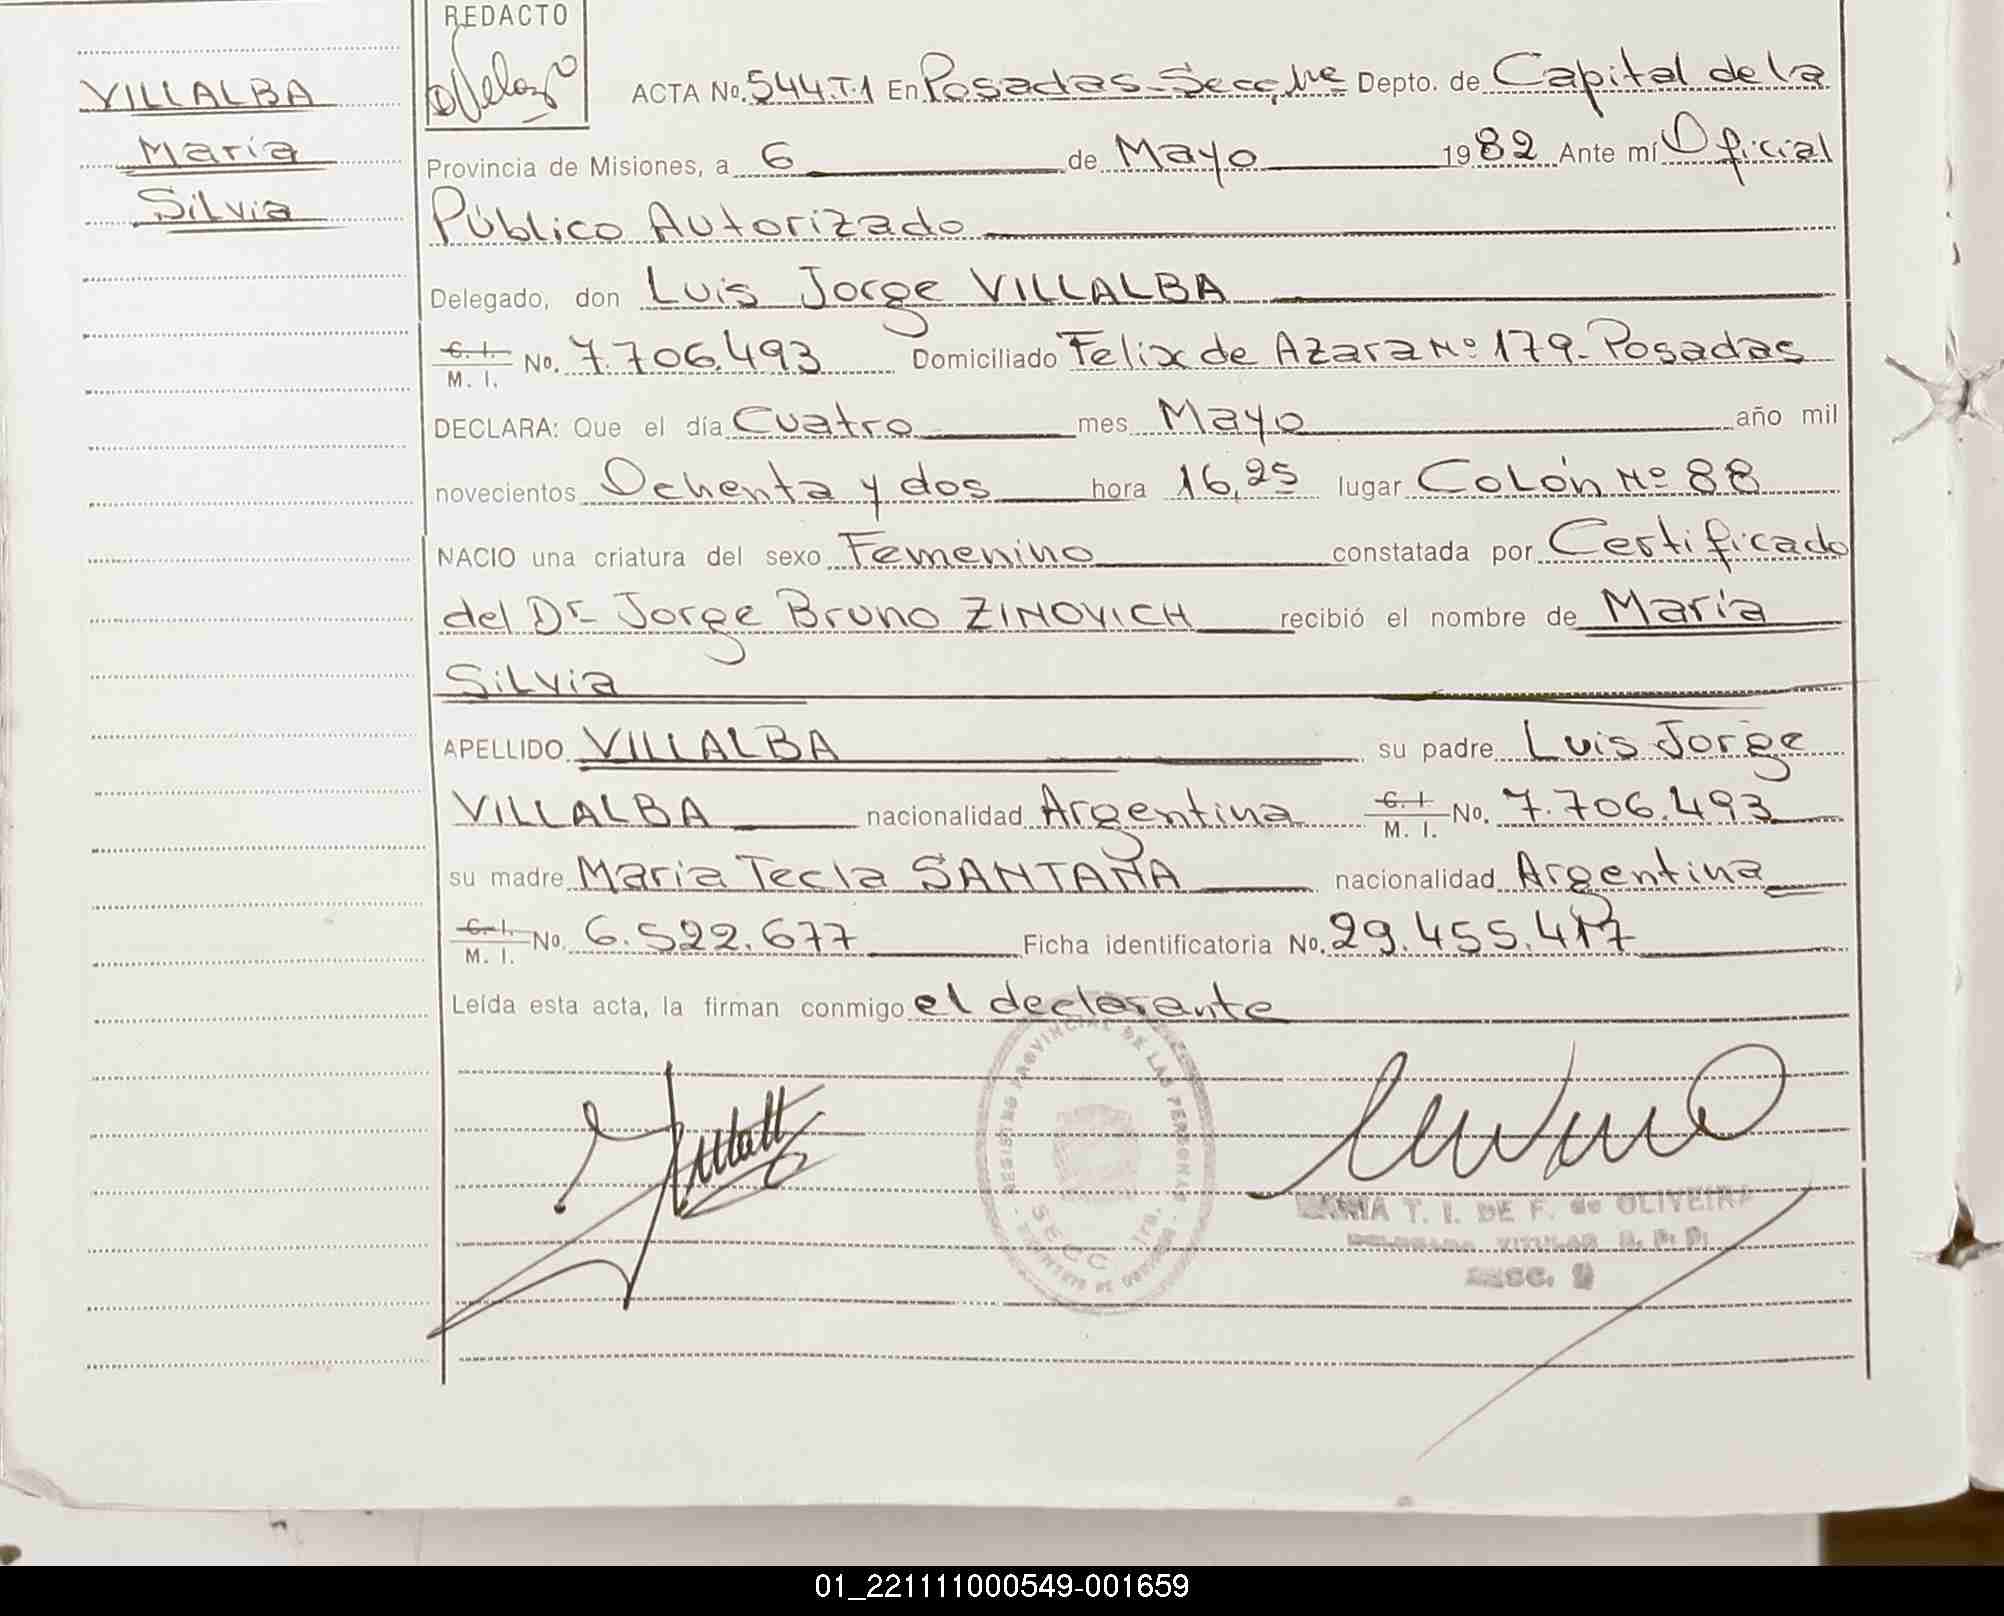 REDACTO
VILLALBA
María
Silvia
ACTA No. 544.T.1 En Posadas-Secc. 1re Depto. de Capital de la
Provincia de Misiones, a 6 de Mayo 1982 Ante mí Oficial
Público Autorizado
Delegado, don Luis Jorge VILLALBA
C. I.
M. I. No. 7.706.493 Domiciliado Felix de Azara Nº 179- Posadas
DECLARA: Que el día Cuatro mes Mayo año mil
novecientos Ochenta y dos hora 16,25 lugar Colón Nº 88
NACIO una criatura del sexo Femenino constatada por Certificado
del Dr. Jorge Bruno ZINOVICH recibió el nombre de María
Silvia
APELLIDO VILLALBA su padre Luis Jorge
VILLALBA nacionalidad Argentina C. I.
M. I. No. 7.706.493
su madre Maria Tecla SANTANA nacionalidad Argentina
C. I.
M. I. No. 6.522.677 Ficha identificatoria No. 29.455.417
Leída esta acta, la firman conmigo el declarante
REGISTRO PROVINCIAL DE LAS PERSONAS
SECC. 1ra.
MARIA T. I. DE F. de OLIVEIRA
DELEGADA TITULAR R. P. P.
01_221111000549-001659